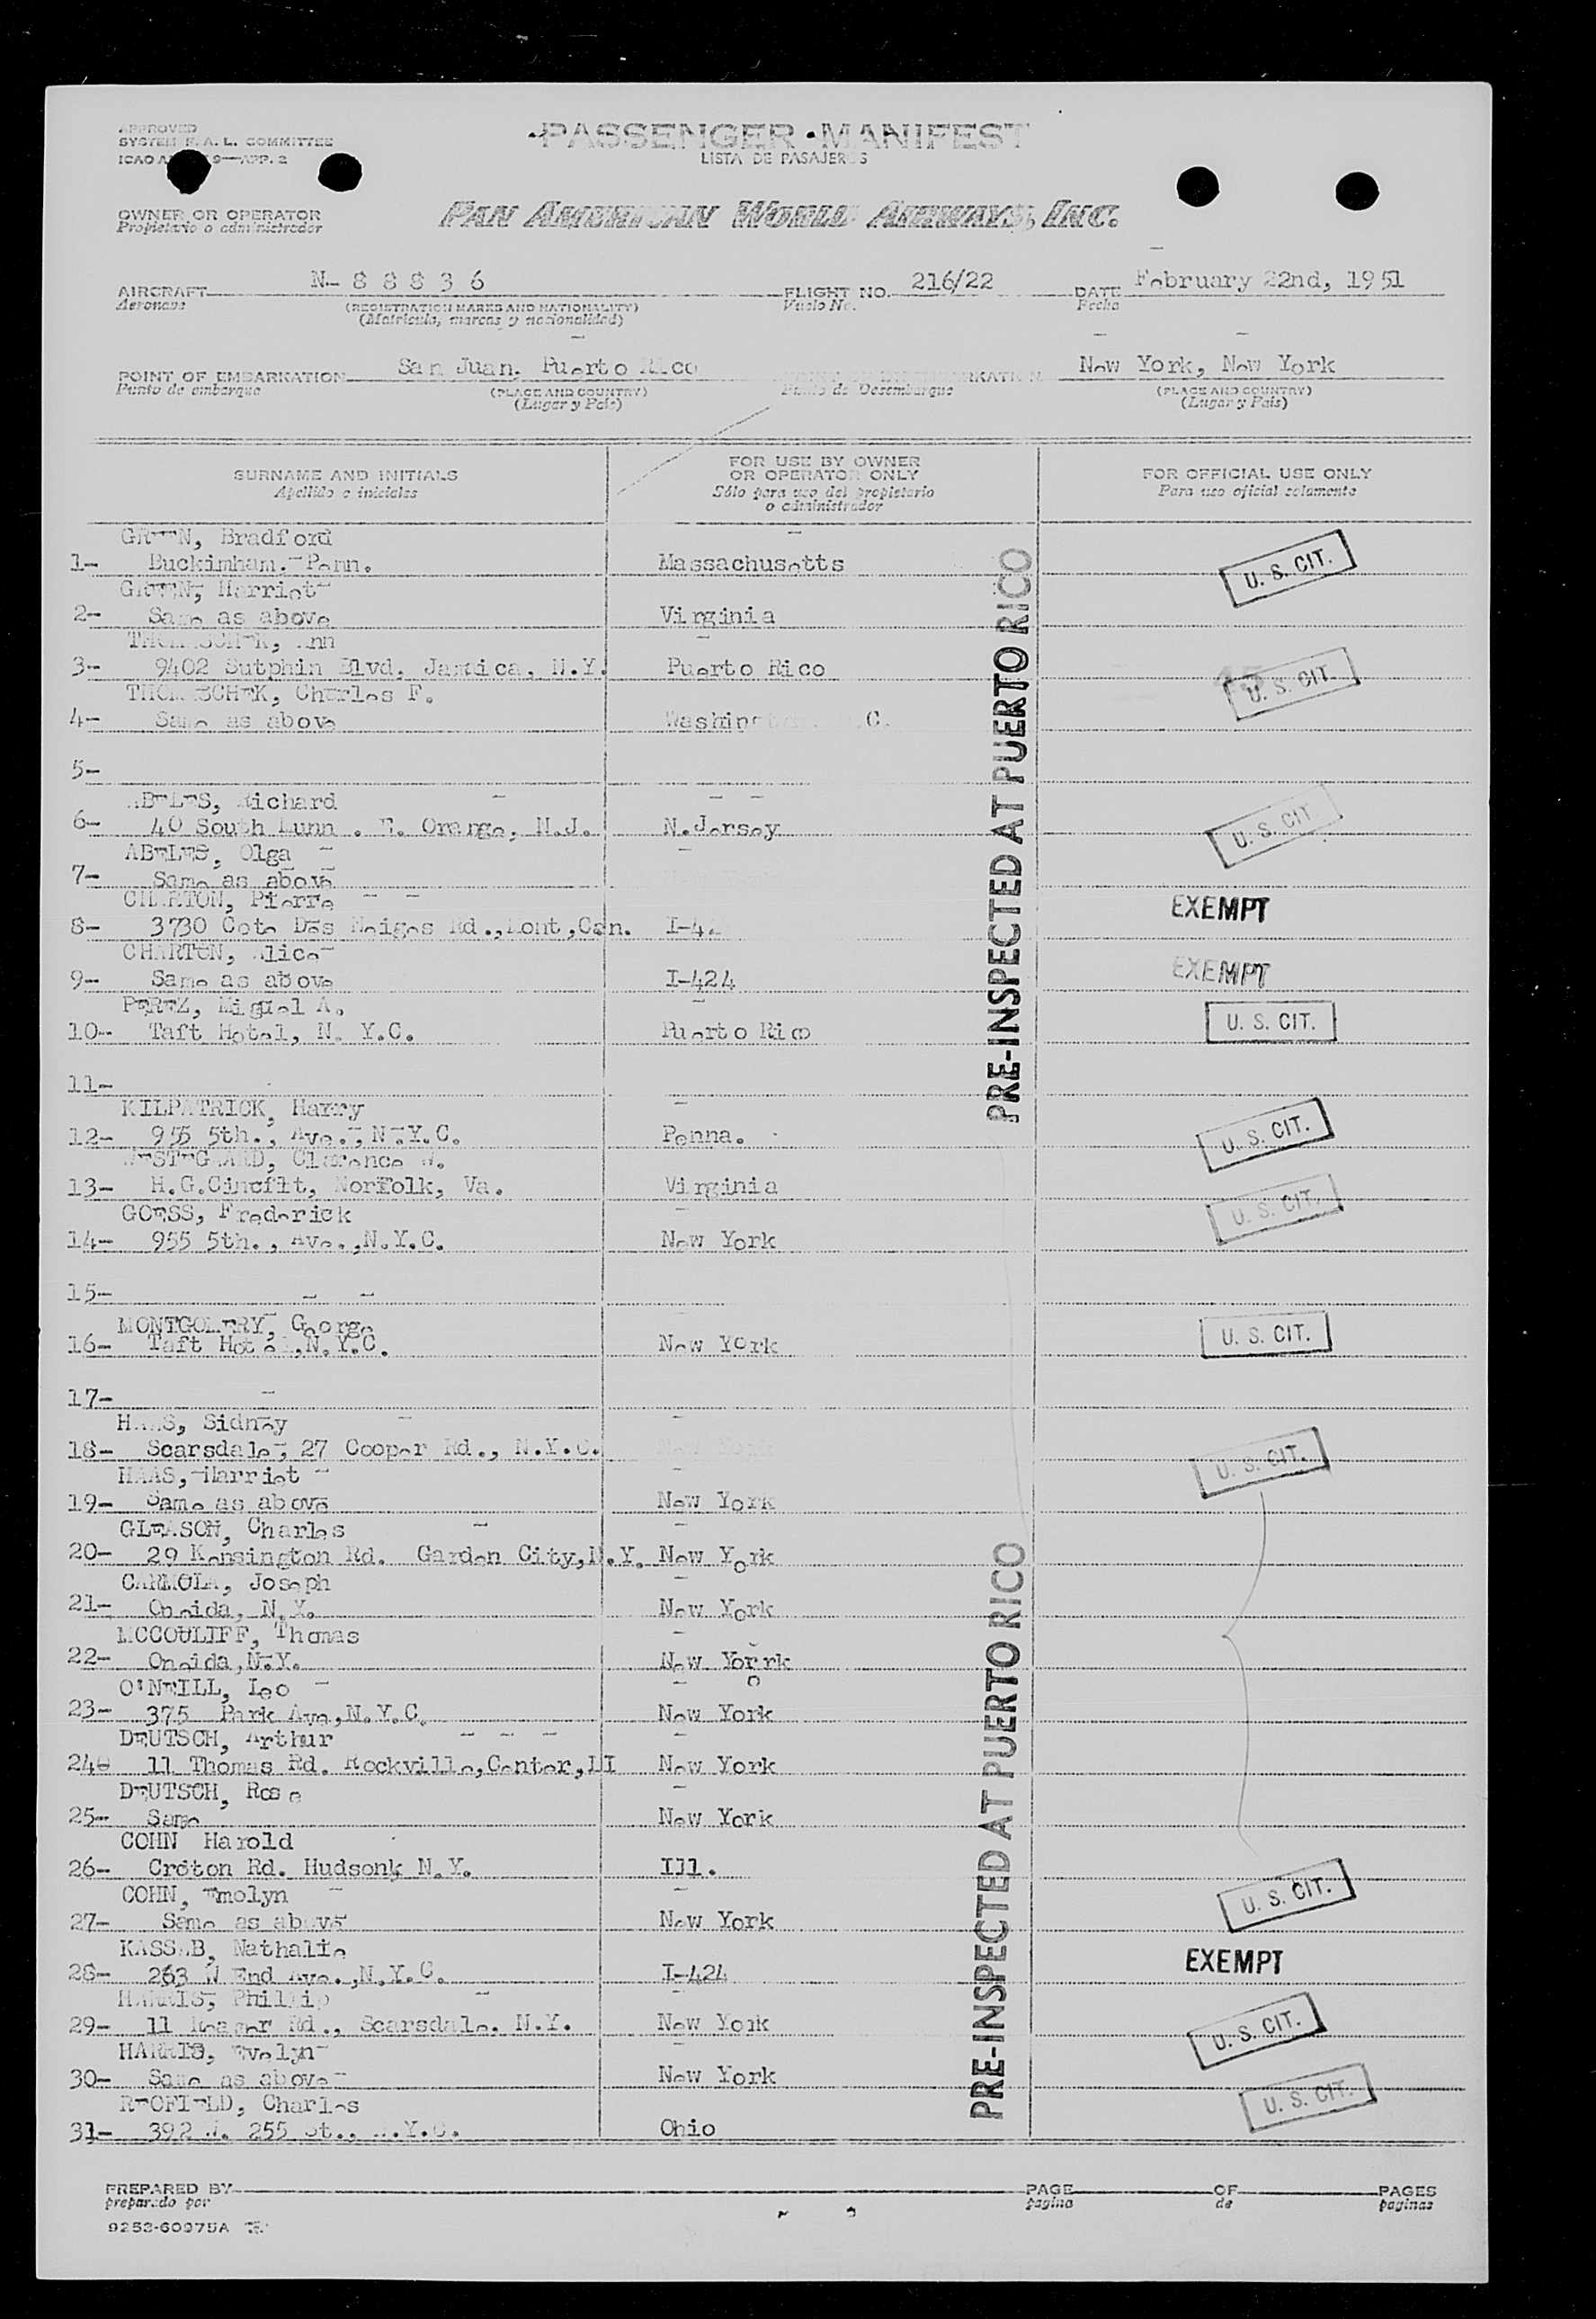 APPROVED
SYSTEM F. A. L. COMMITTEE
ICAO 9—APP. 2
PASSENGER MANIFEST
LISTA DE PASAJEROS
OWNER OR OPERATOR
Propietario o administrador
PAN AMERICAN WORLD AIRWAYS, INC.
AIRCRAFT N- 8 8 8 3 6 FLIGHT NO. 216/22 DATE February 22nd, 1951
Aeronave (REGISTRATION MARKS AND NATIONALITY) Vuelo No. Fecha
(Matricula, marcas y nacionalidad)
POINT OF EMBARKATION San Juan. Puerto Rico New York, New York
Punto de embarque (PLACE AND COUNTRY) Punto de Desembarque (PLACE AND COUNTRY)
(Lugar y País) (Lugar y País)
SURNAME AND INITIALS
Apellido e iniciales
FOR USE BY OWNER
OR OPERATOR ONLY
Sólo para uso del propietario
o administrador
FOR OFFICIAL USE ONLY
Para uso oficial solamente
GREEN, Bradford
1- Buckimham. Penn. Massachusetts U. S. CIT.
GREEN, Harriet
2- Same as above Virginia
3- 9402 Sutphin Blvd. Jamaica, N.Y. Puerto Rico U. S. CIT.
Charles F.
4- Same as above C.
5-
ABELES, Richard
6- 40 South Munn . E. Orange, N.J. N.Jersey U. S. CIT.
ABELES, Olga
7- Same as above
CHARTON, Pierre
8- 3730 Cote Des Neiges Rd.,Mont,Can. EXEMPT
CHARTON, Alice
9- Same as above I-424 EXEMPT
PEREZ, Miguel A.
10- Taft Hotel, N. Y.C. Puerto Rico U. S. CIT.
11-
KILPATRICK, Harry
12- 955 5th., Ave., N.Y.C. Penna. U. S. CIT.
Clarence W.
13- H.G.Cincflt, Norfolk, Va. Virginia U. S. CIT.
GOESS, Frederick
14- 955 5th., Ave.,N.Y.C. New York
15-
MONTGOMERY, George
16- Taft Hotel,N.Y.C. New York U. S. CIT.
17-
HAAS, Sidney
18- Scarsdale, 27 Cooper Rd., N.Y.C. New York U. S. CIT.
HAAS, Harriet
19- Same as above New York
GLEASON, Charles
20- 29 Kensington Rd. Garden City,N.Y. New York
CARMOLA, Joseph
21- Oneida, N.Y. New York
MCCOULIFF, Thomas
22- Oneida,N.Y. New Yorrk
O'NEILL, Leo
23- 375 Park Ave,N.Y.C. New York
DEUTSCH, Arthur
240 11 Thomas Rd. Rockville,Center,LI New York
DEUTSCH, Rose
25- Same New York
COHN Harold
26- Croton Rd. Hudsonk N.Y. Ill.
COHN, Emolyn
27- Same as above New York U. S. CIT.
KASSAB, Nathalie
28- 263 W End Ave.,N.Y.C. I-424 EXEMPT
HARRIS, Phillip
29- 11 Rd., Scarsdale. N.Y. New York U. S. CIT.
HARRIS, Evelyn
30- Same as above New York
Charles
31- 392 W. 255 St., N.Y.C. Ohio U. S. CIT.
PRE-INSPECTED AT PUERTO RICO
PRE-INSPECTED AT PUERTO RICO
PREPARED BY PAGE OF PAGES
preparado por pagina de paginas
9253-60975A